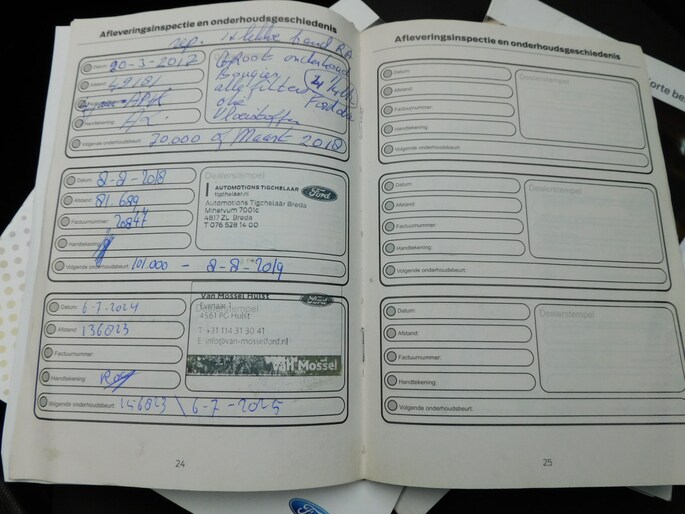 Afleveringsinspectie en onderhoudsgeschiedenis
rep. 1x lekke band RA
Datum: 20-3-2017
Afstand: 49181
Handtekening:
Grote onderhoud
Bougies
alle filters
olie
Vloeistoffen
Volgende onderhoudsbeurt: 70.000 of Maart 2018
Datum: 8-8-2018
Afstand: 81.689
Factuurnummer: 20847
Handtekening:
Volgende onderhoudsbeurt: 101.000 - 8-8-2019
Dealerstempel
AUTOMOTIONS TIGCHELAAR
tigchelaar.nl
Ford
Automotions Tigchelaar Breda
Minervum 7001c
4817 ZL Breda
T 076 528 14 00
Datum: 6-7-2024
Afstand: 136823
Factuurnummer:
Handtekening:
Volgende onderhoudsbeurt: 156823 \ 6-7-2025
Van Mossel Hulst
Ford
Dealerstempel
4561 PG Hulst
T: +31 114 31 30 41
E: info@van-mosselford.nl
van Mossel
24
Afleveringsinspectie en onderhoudsgeschiedenis
Datum:
Afstand:
Factuurnummer:
Handtekening:
Volgende onderhoudsbeurt:
Dealerstempel
Datum:
Afstand:
Factuurnummer:
Handtekening:
Volgende onderhoudsbeurt:
Dealerstempel
Datum:
Afstand:
Factuurnummer:
Handtekening:
Volgende onderhoudsbeurt:
Dealerstempel
25
Korte be
Ford